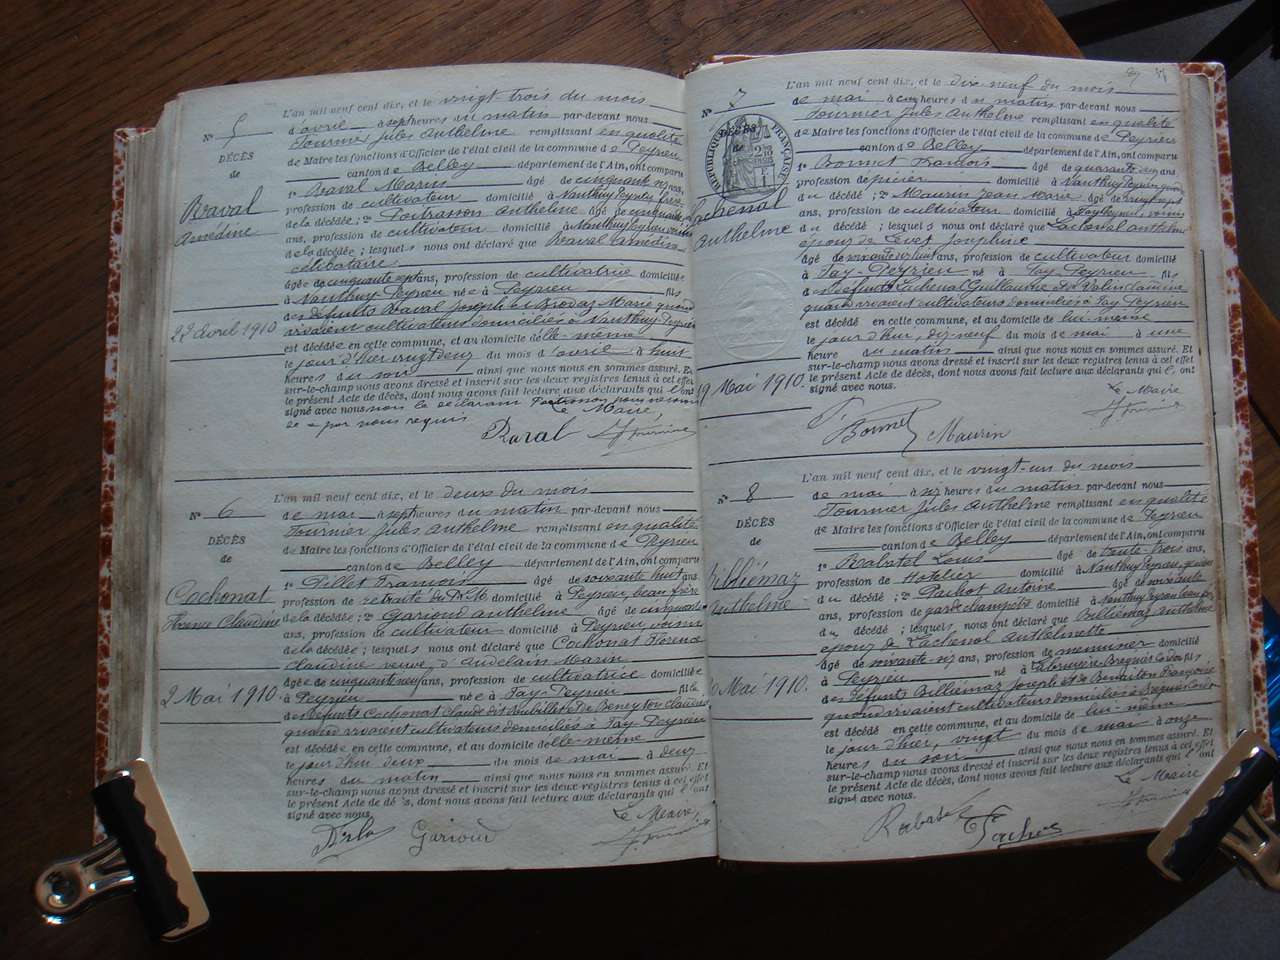 N° 5
DÉCÈS
de
Raval
Amédine
22 Avril 1910
L'an mil neuf cent dix, et le vingt trois du mois
d'avril à sept heures du matin par-devant nous
Fournier Jules Anthelme remplissant en qualité
de Maire les fonctions d'Officier de l'état civil de la commune de Peyrieu
canton de Belley département de l'Ain, ont comparu
1° Raval Marius âgé de cinquante six ans,
profession de cultivateur domicilié à Nanthuy Peyrieu
de la décédée ; 2° Anthelme âgé de cinquante
ans, profession de cultivateur domicilié à Nanthuy Peyrieu voisin
de la décédée ; lesquels nous ont déclaré que Raval Amédine
célibataire
âgée de cinquante sept ans, profession de cultivatrice domiciliée
à Nanthuy Peyrieu née à Peyrieu fille
des défunts Raval Joseph et Marie quand
vivaient cultivateurs domiciliés à Nanthuy Peyrieu
est décédée en cette commune, et au domicile d'elle-même
le jour d'hier vingt deux du mois d'avril à huit
heures du soir ainsi que nous nous en sommes assuré. Et
sur-le-champ nous avons dressé et inscrit sur les deux registres tenus à cet effet
le présent Acte de décès, dont nous avons fait lecture aux déclarants qui l'ont
signé avec nous
de ce par nous requis Le Maire,
Raval J Fournier
N° 6
DÉCÈS
de
Cochonat
Florence Claudine
2 Mai 1910.
L'an mil neuf cent dix, et le deux du mois
de mai à sept heures du matin par-devant nous
Fournier Jules Anthelme remplissant en qualité
de Maire les fonctions d'Officier de l'état civil de la commune de Peyrieu
canton de Belley département de l'Ain, ont comparu
1° François âgé de soixante huit ans,
profession de retraité du P.L.M. domicilié à Peyrieu, beau frère
de la décédée ; 2° Garioud Anthelme âgé de cinquante
ans, profession de cultivateur domicilié à Peyrieu, voisin
de la décédée ; lesquels nous ont déclaré que Cochonat Florence
Claudine veuve d'Andelain Marin
âgée de cinquante neuf ans, profession de cultivatrice domiciliée
à Peyrieu née à Fay-Peyrieu fille
des défunts Cochonat Claude dit et de Beneyton Claudine
quand vivaient cultivateurs domiciliés à Fay-Peyrieu
est décédée en cette commune, et au domicile d'elle-même
le jour d'hui deux du mois de mai à deux
heures du matin ainsi que nous nous en sommes assuré. Et
sur-le-champ nous avons dressé et inscrit sur les deux registres tenus à cet effet
le présent Acte de décès, dont nous avons fait lecture aux déclarants qui l'ont
signé avec nous. Le Maire,
Garioud J Fournier
N° 7
DÉCÈS
de
RÉPUBLIQUE FRANÇAISE
Lachenal
Anthelme
19 Mai 1910.
L'an mil neuf cent dix, et le dix neuf du mois
de mai à cinq heures du matin par-devant nous
Fournier Jules Anthelme remplissant en qualité
de Maire les fonctions d'Officier de l'état civil de la commune de Peyrieu
canton de Belley département de l'Ain, ont comparu
1° Bonnet François âgé de quarante six ans,
profession de domicilié à Nanthuy Peyrieu
du décédé ; 2° Maurin Jean Marie âgé de vingt sept
ans, profession de cultivateur domicilié à Fay Peyrieu, voisin
du décédé ; lesquels nous ont déclaré que Lachenal Anthelme
époux de Joséphine
âgé de soixante six ans, profession de cultivateur domicilié
à Fay-Peyrieu né à Fay-Peyrieu fils
des défunts Lachenal Guillaume et de Claudine
quand vivaient cultivateurs domiciliés à Fay Peyrieu
est décédé en cette commune, et au domicile de lui-même
le jour d'hui, dix neuf du mois de mai à une
heure du matin ainsi que nous nous en sommes assuré. Et
sur-le-champ nous avons dressé et inscrit sur les deux registres tenus à cet effet
le présent Acte de décès, dont nous avons fait lecture aux déclarants qui l'ont
signé avec nous. Le Maire
Bonnet Maurin J Fournier
N° 8
DÉCÈS
de
Billiémaz
Anthelme
20 Mai 1910.
L'an mil neuf cent dix, et le vingt-un du mois
de mai à six heures du matin par-devant nous
Fournier Jules Anthelme remplissant en qualité
de Maire les fonctions d'Officier de l'état civil de la commune de Peyrieu
canton de Belley département de l'Ain, ont comparu
1° Rabatel Louis âgé de trente-trois ans,
profession de Hôtelier domicilié à Nanthuy Peyrieu
du décédé ; 2° Pachot Antoine âgé de soixante
ans, profession de garde champêtre domicilié à Nanthuy Peyrieu
du décédé ; lesquels nous ont déclaré que Billiémaz Anthelme
époux de Lachenal Anthelmette
âgé de soixante-six ans, profession de menuisier domicilié
à Peyrieu né à fils
des défunts Billiémaz Joseph et de Françoise
quand vivaient cultivateurs domiciliés à
est décédé en cette commune, et au domicile de lui-même
le jour d'hier, vingt du mois de mai à onze
heures du soir ainsi que nous nous en sommes assuré. Et
sur-le-champ nous avons dressé et inscrit sur les deux registres tenus à cet effet
le présent Acte de décès, dont nous avons fait lecture aux déclarants qui l'ont
signé avec nous. Le Maire
Rabatel J Fournier